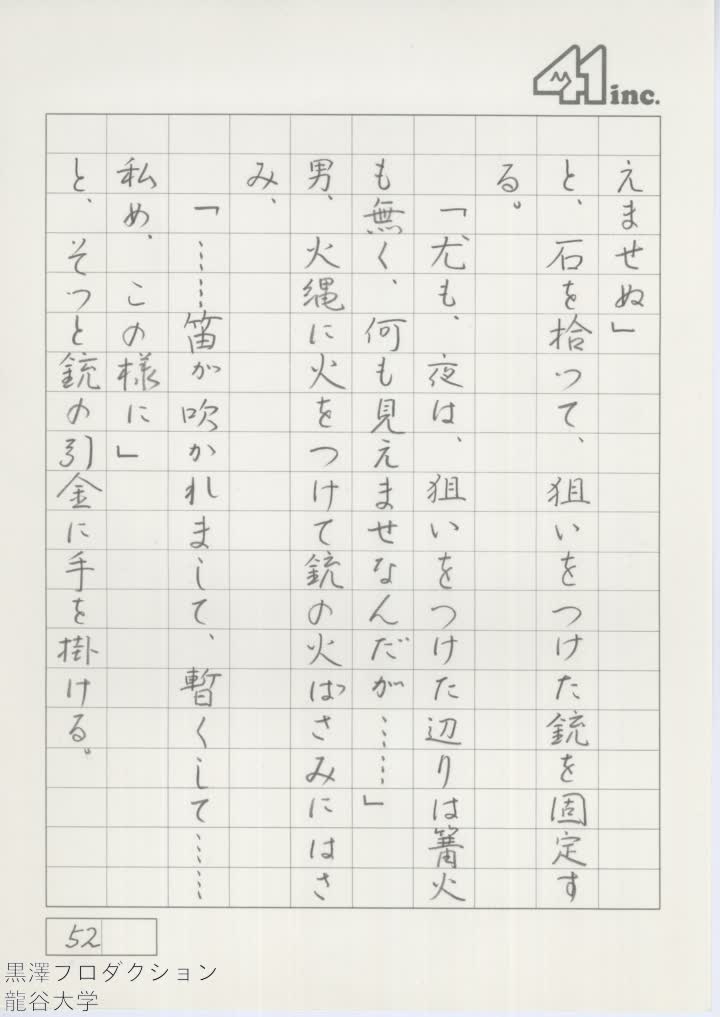 41 inc.
えませぬ」
と、石を拾つて、狙いをつけた銃を固定す
る。
「尤も、夜は、狙いをつけた辺りは篝火
も無く、何も見えませなんだが……」
男、火縄に火をつけて銃の火ばさみにはさ
み、
「……笛が吹かれまして、暫くして……
私め、この様に」
と、そつと銃の引金に手を掛ける。
52
黒澤フロダクション
龍谷大学